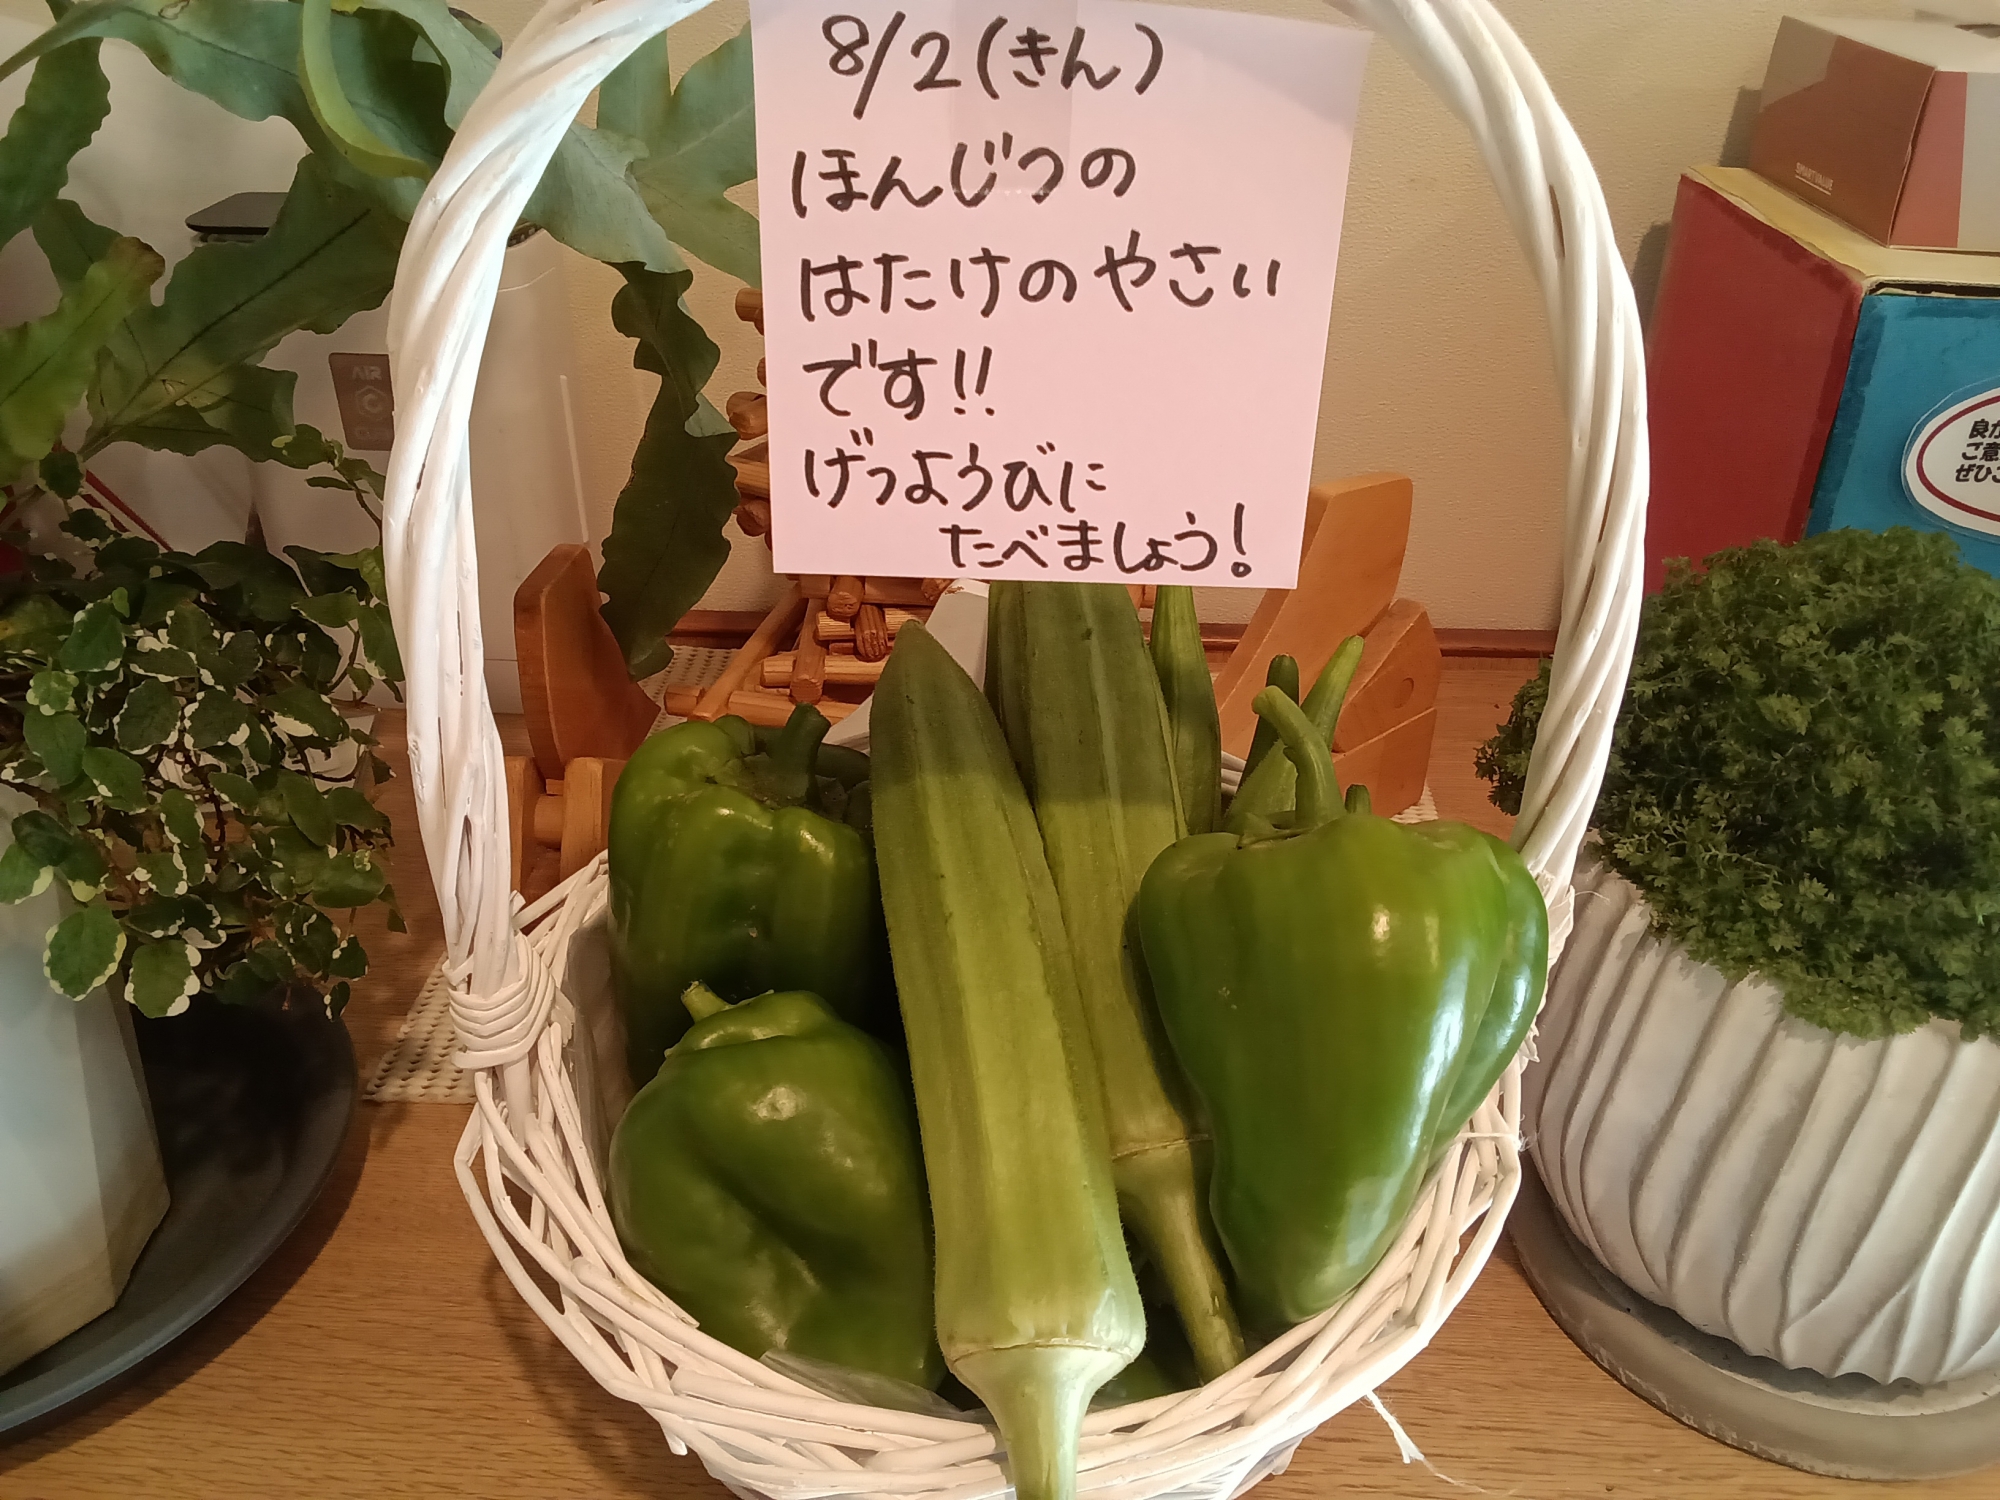 8/2(きん)
ほんじつの
はたけのやさい
です!!
げつようびに
たべましょう!
AIR
SMART VALUE
ぜひ